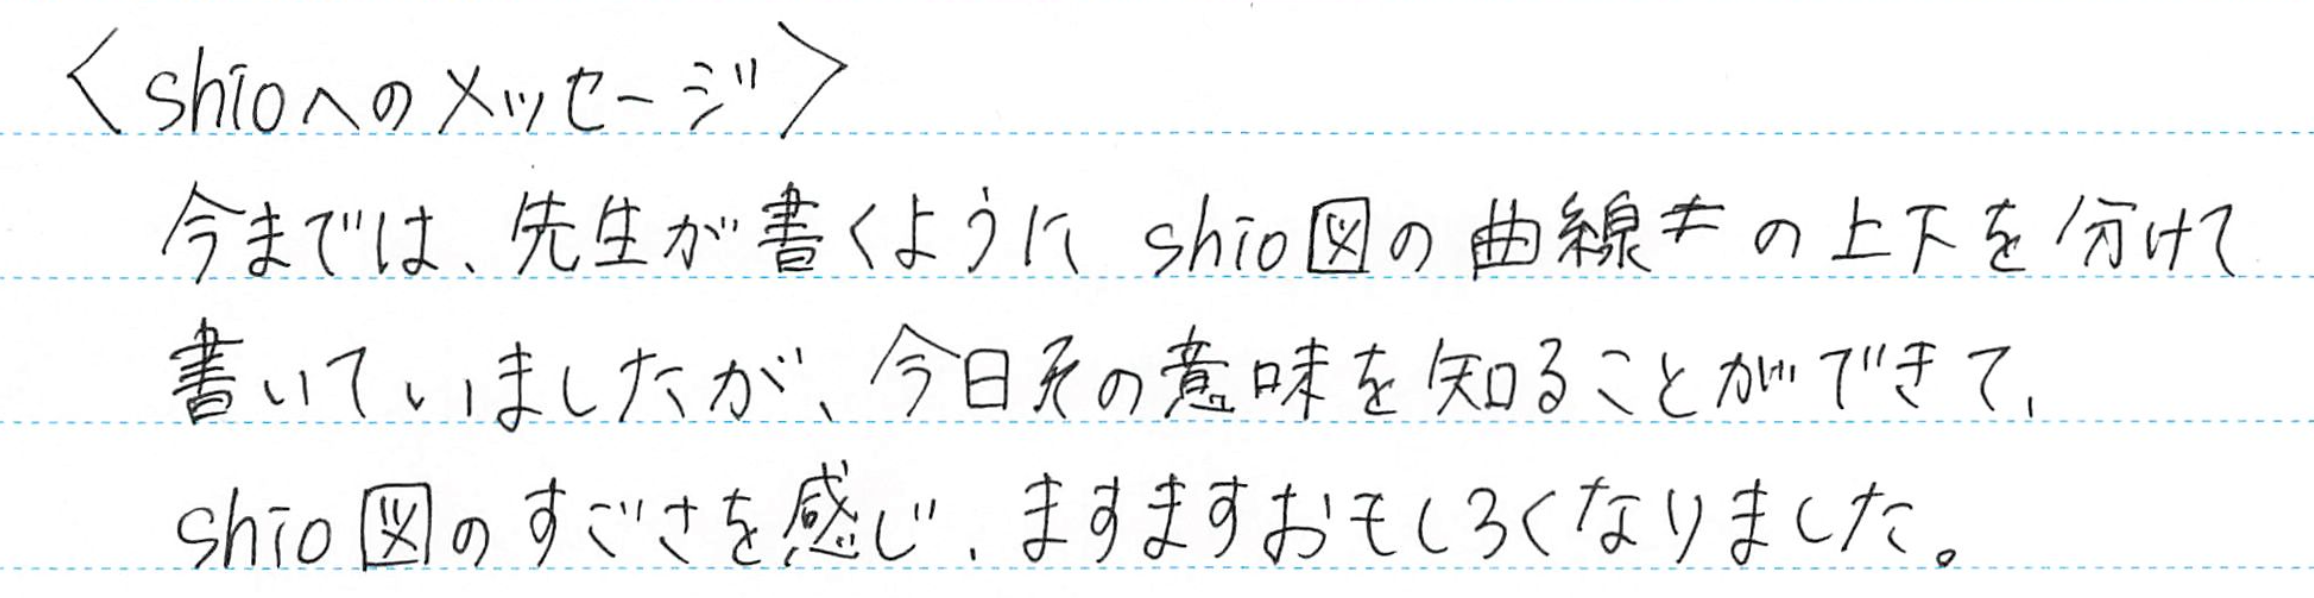 〈shioへのメッセージ〉
今までは、先生が書くように shio図の曲線キの上下を分けて
書いていましたが、今日その意味を知ることができて、
shio図のすごさを感じ、ますますおもしろくなりました。